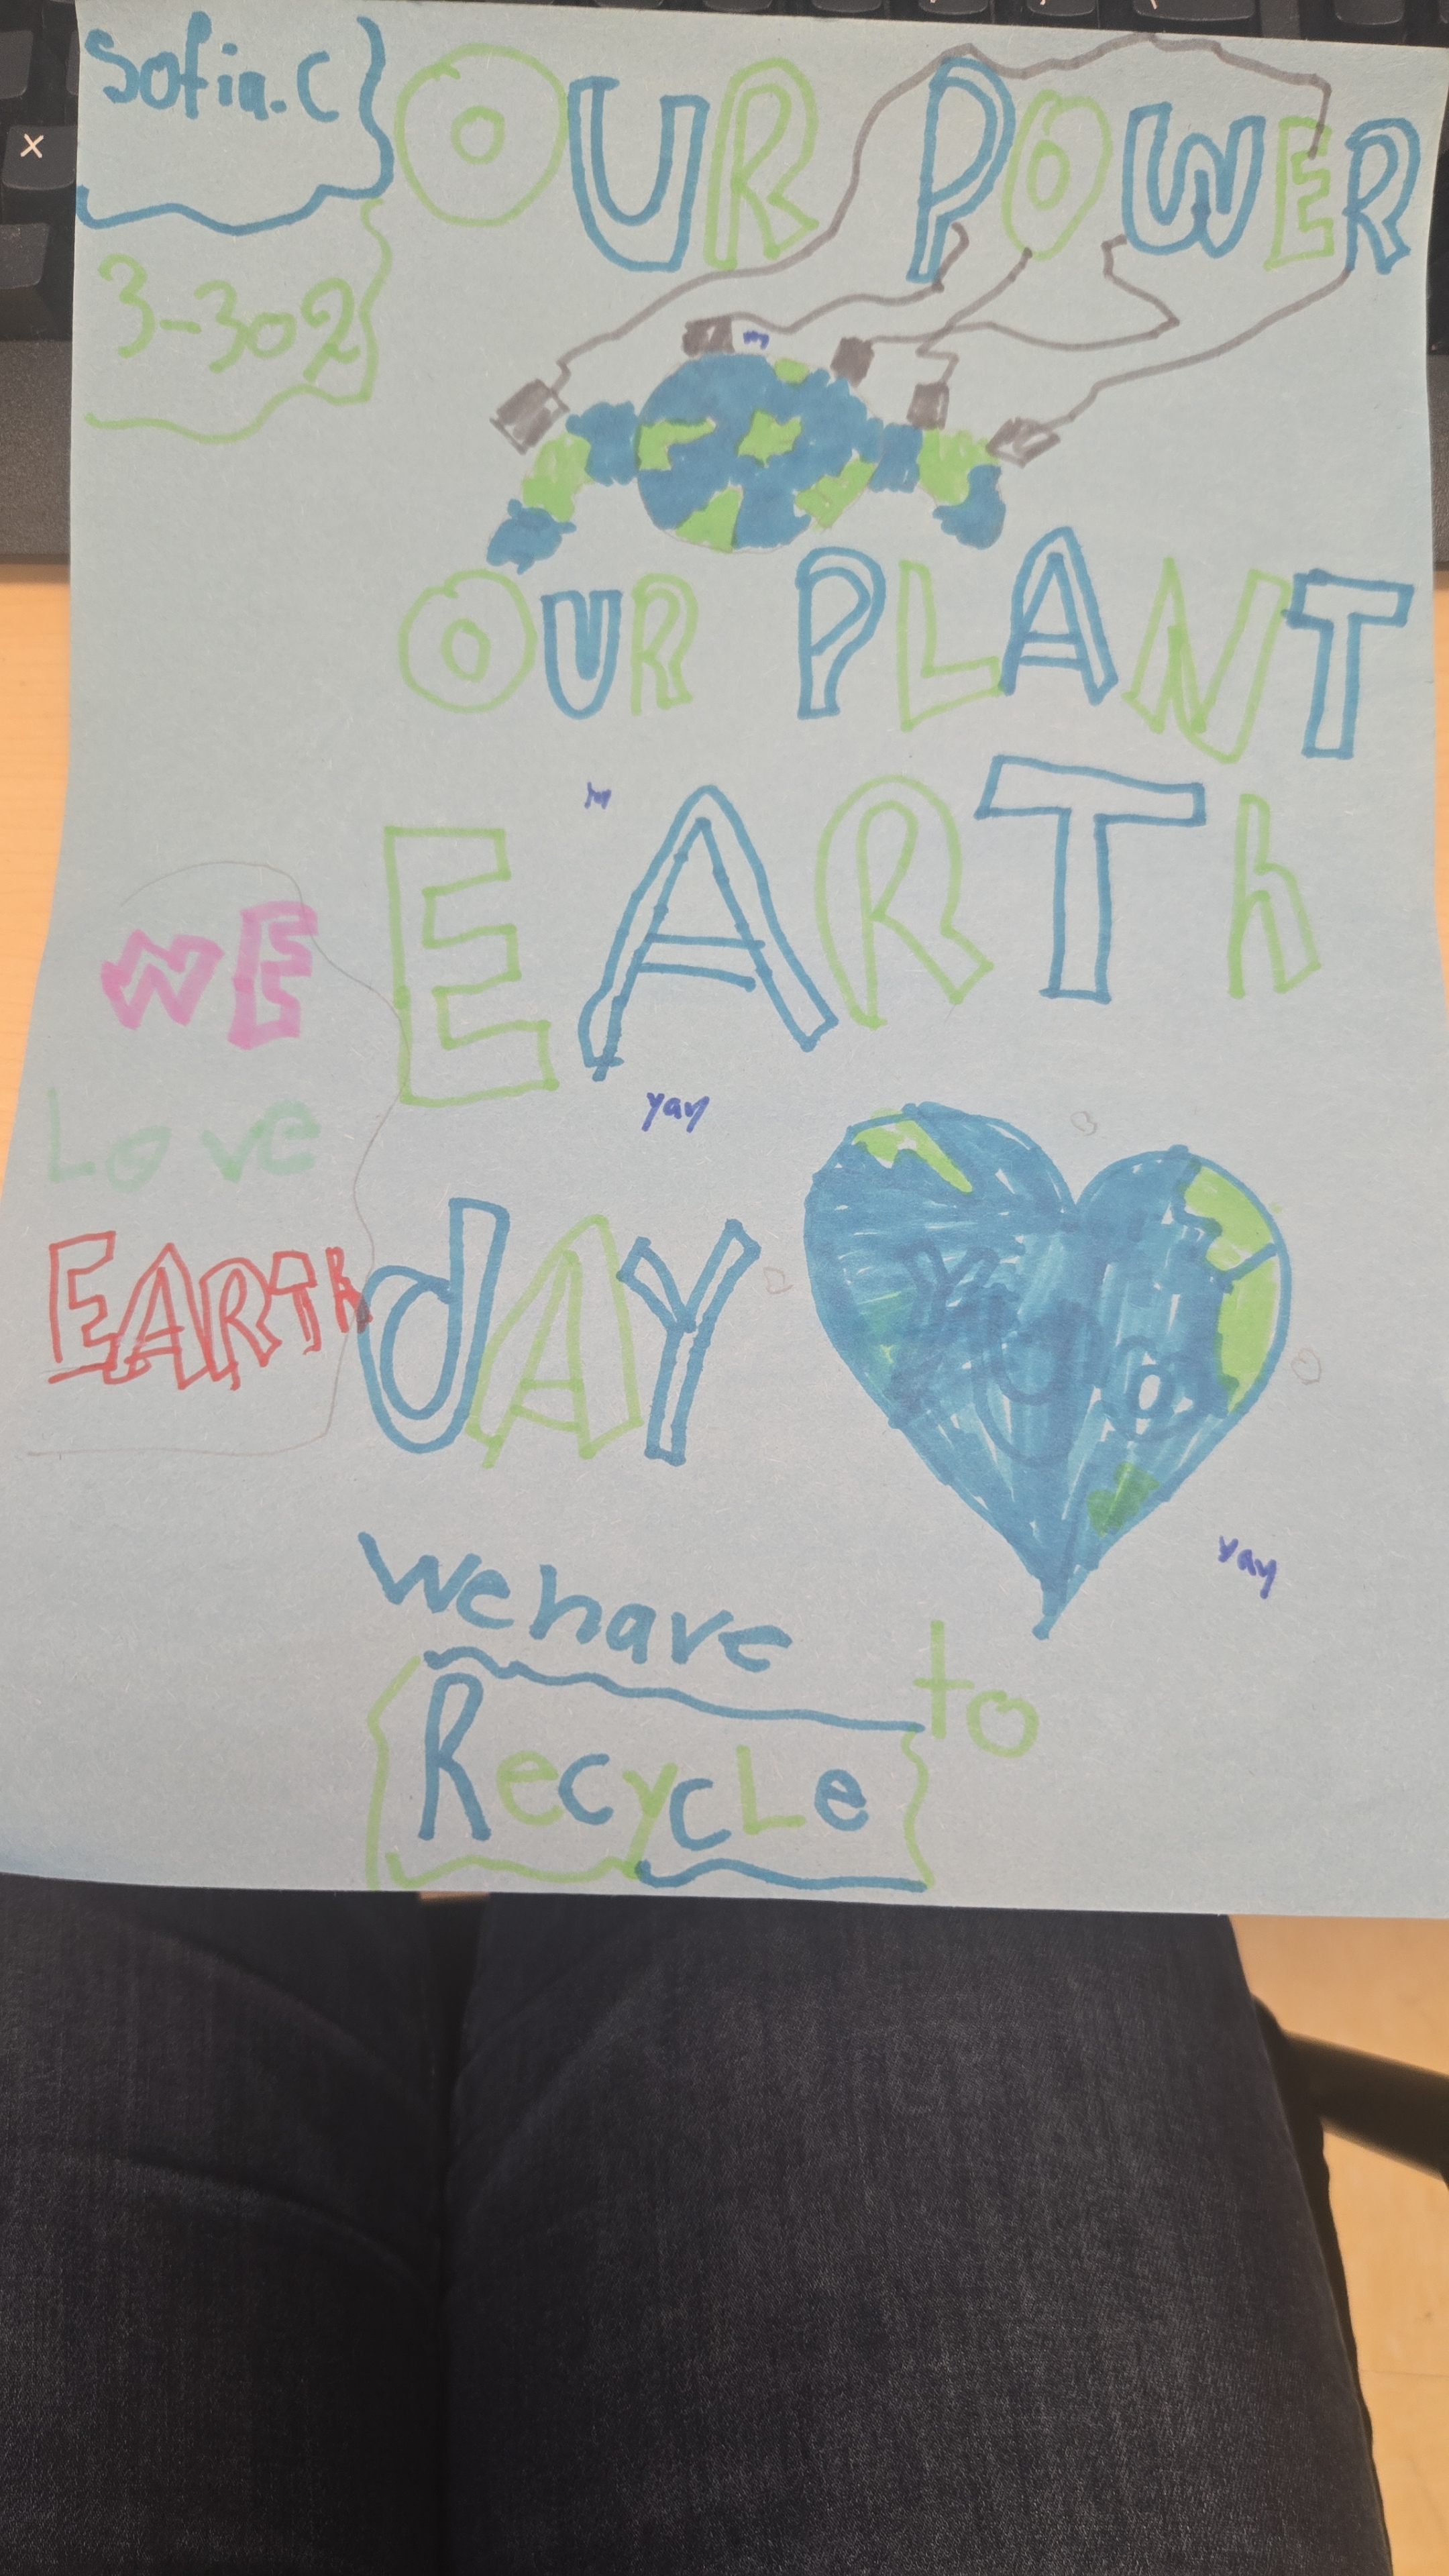 Sofia.C
OUR POWER
3-302
OUR PLANT
EARTh
WE
Love
EARTh
yay
dAY
yay
We have
to
RecycLe
X